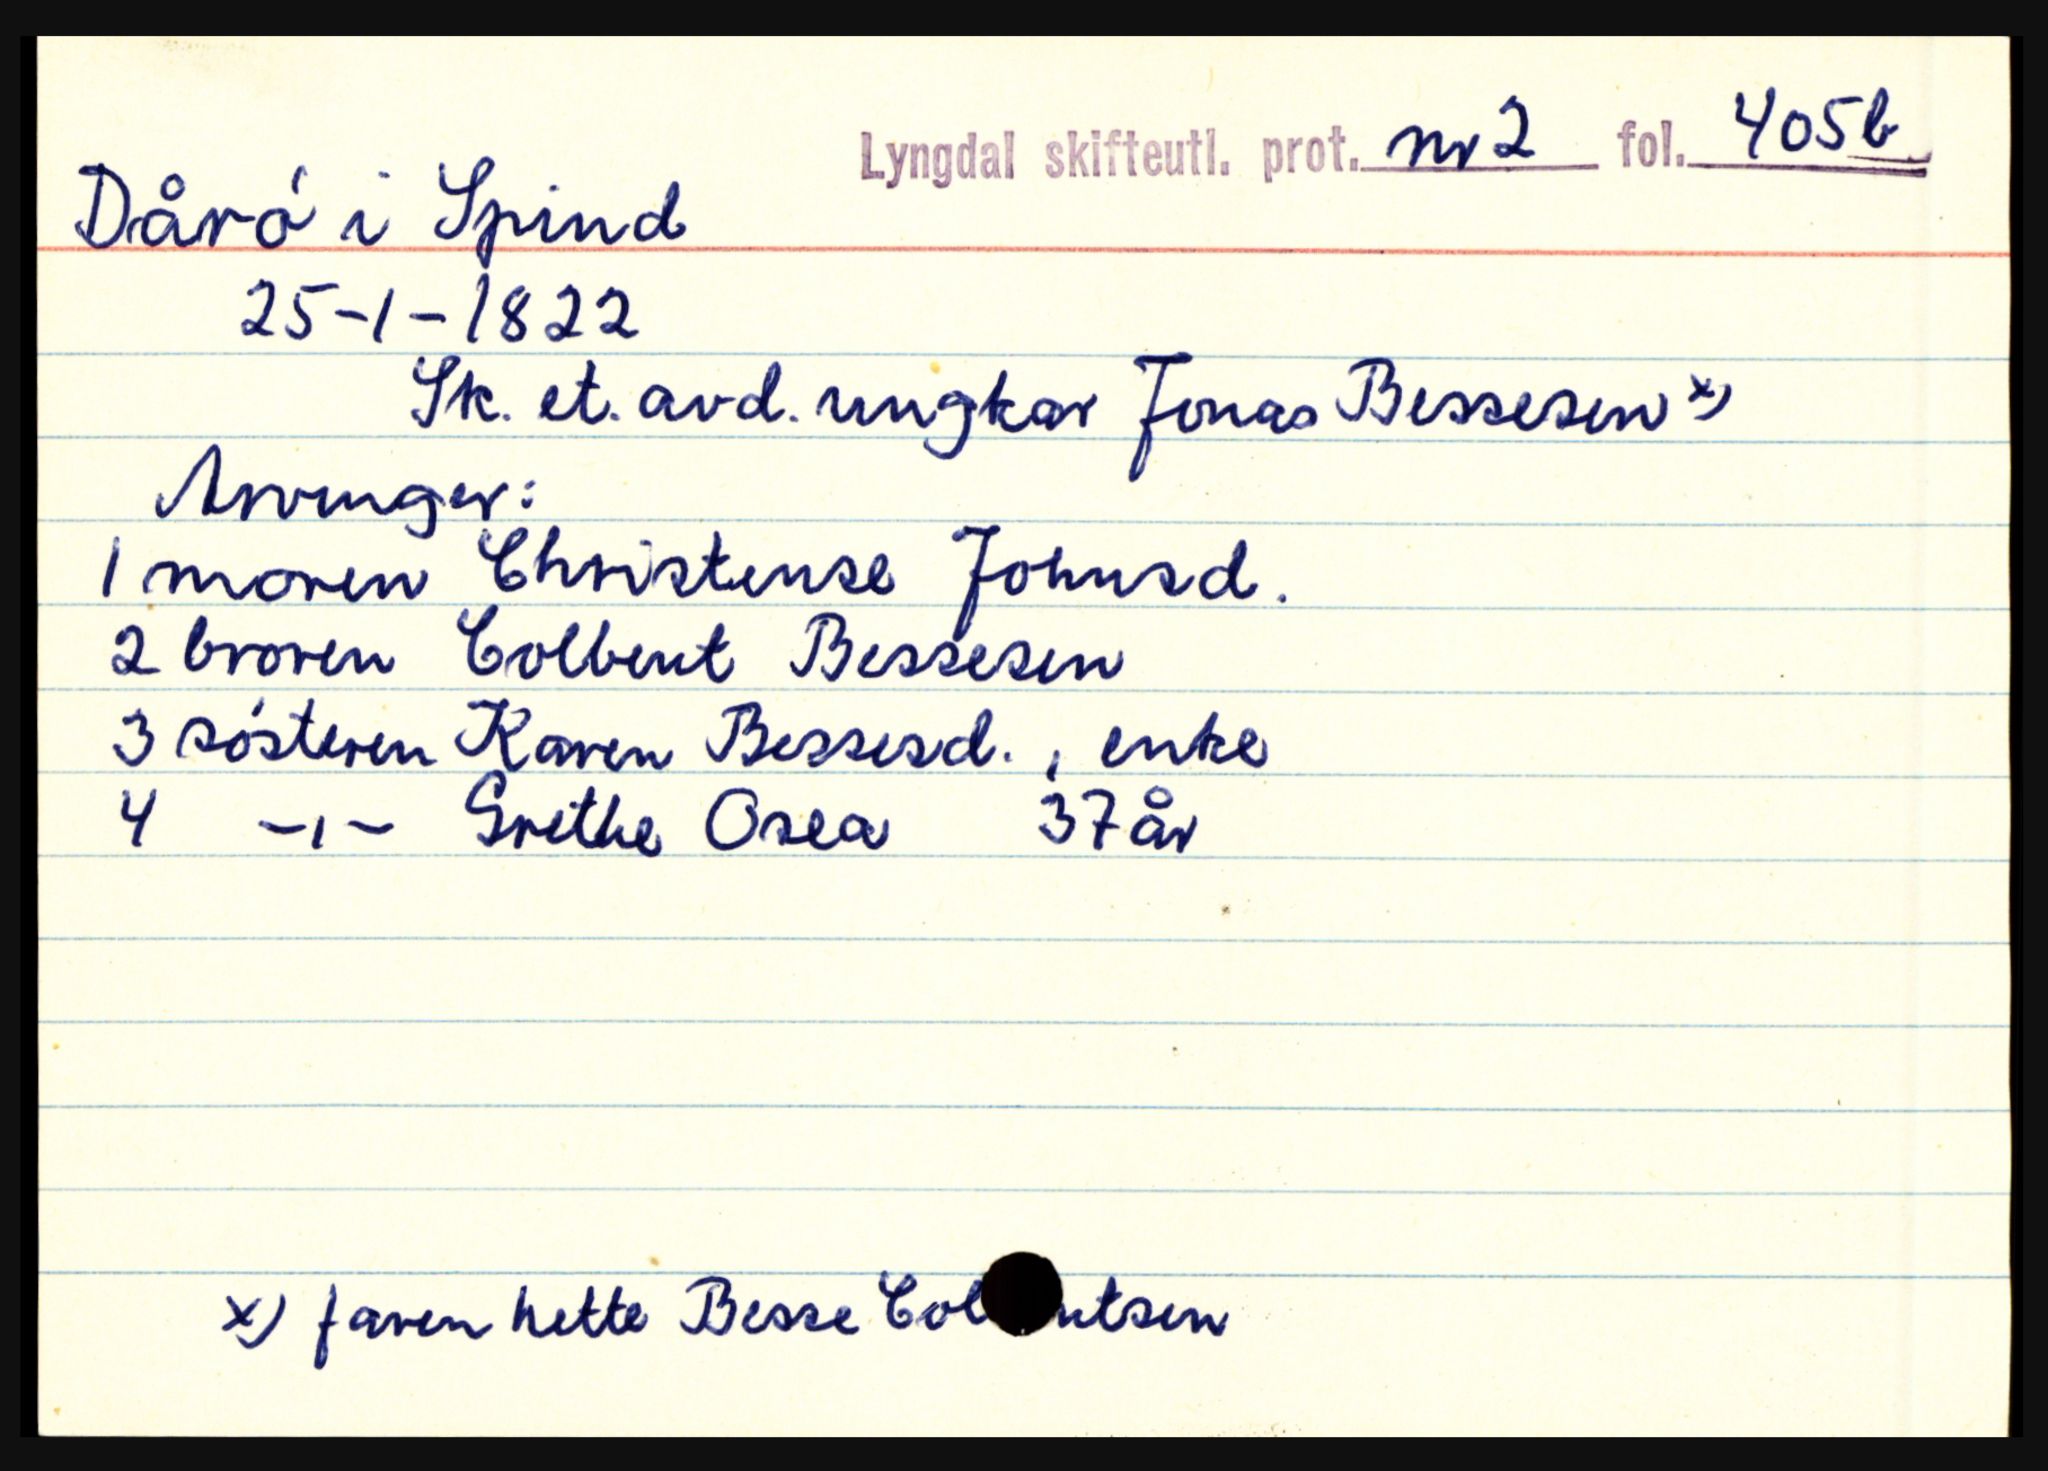 Lyngdal skifteutl. prot. nr 2 fol. 405b
Dårö i Spind
25-1-1822
Sk. et. avd. ungkar Jonas Bessesen x)
Arvinger:
1 moren Christense Johnsd.
2 broren Colbent Bessesen
3 sösteren Karen Bessesd., enke
4 -,- Grethe Osea 37 år
x) faren hette Besse